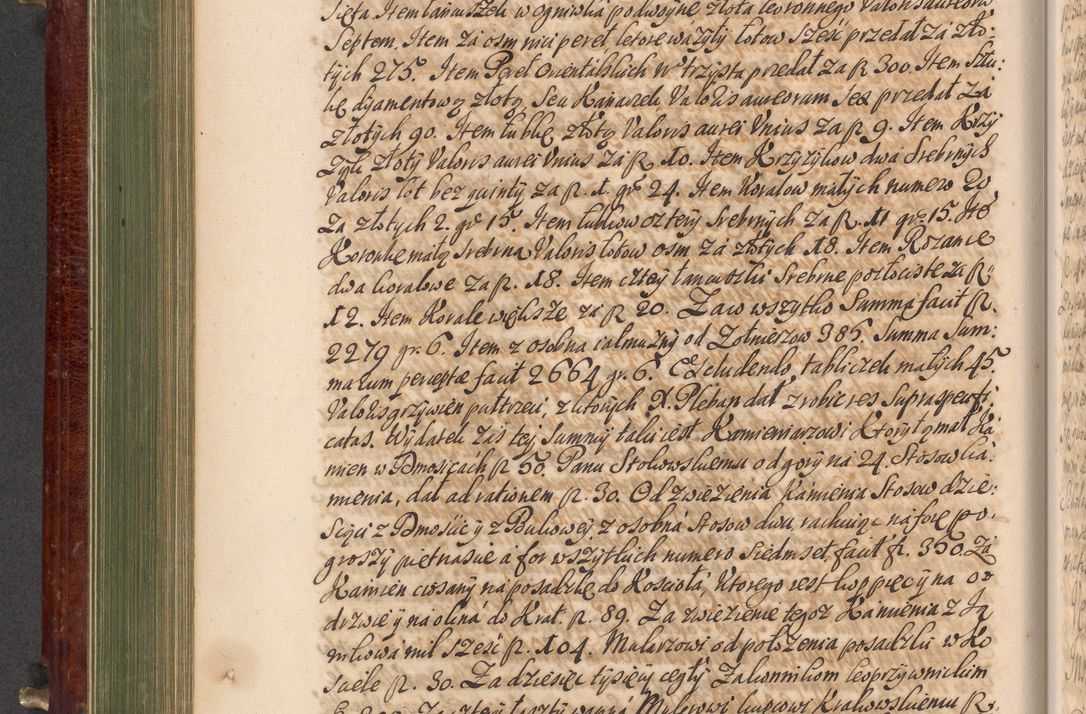 Septem, Item za osm nici pereł ktore ważyły łotow sześć przedał za zło:
tych 275. Item Pereł Orientalskich N° trzysta przedał za fl 300. Item Sztu:
kę dyamentową złotą, Seu Kanaczek Valoris aureorum Sex przedał Za
złotych 90. Item łubkę złotą Valoris aurei Unius za fl. 9. Item Krzy
żyk złoty Valoris aurei Unius za fl. 10. Item Krzyżykow dwa Srebrnych
Valoris łot bez quinty za fl. 1 gr. 24. Item Koralow małych numero 20
za złotych 2. gr 15. Item łubkow cztery Srebrnych za fl. 11 gr. 15. Ite
Koronkę małą Srebrną Valoris łotow osm za złotych 18. Item Rożance
dwa koralowe za fl. 18. Item cztery łancuszki Srebrne pozłociste za fl.
12. Item Korale większe za fl 20. Zaco wszytko Summa facit fl.
2279 gr. 6. Item z osobna iałmużny od Żołnierzow 385. Summa Sum:
marum perceptæ facit 2664 gr. 6. Excludendo tabliczek małych 45.
Valoris grzywien pułtrzeci, z ktorych X. Pleban dał zrobic res supraspecifi:
catas. Wydatek zaś tey Summy taki iest Kamieniarzowi Ktory łomał Ka
mien w Dmosicach fl 50. Panu Stokowskiemu od gory na 24. Stosow ka:
mienia, dał ad rationem fl. 30. Od zwiezienia Kamienia Stosow dzie:
sięci z Dmosic y z Bukowey, z osobna Stosow dwa, rachuiąc na forę po
groszy pietnascie a for wszytkich numero Siedmset, facit fl. 350. Za
Kamien ciosany na posadzkę do Kościoła, Ktorego iest kop pięć y na od
drzwie y na okna do Krat fl. 89. Za zwiezienie tegoż Kamienia z
mil sześć fl. 104. Mularzowi od położenia posadzki w Ko
sciele fl. 30. Za dziesięc tysięcy cegły Zakonnikom koprzywnickim